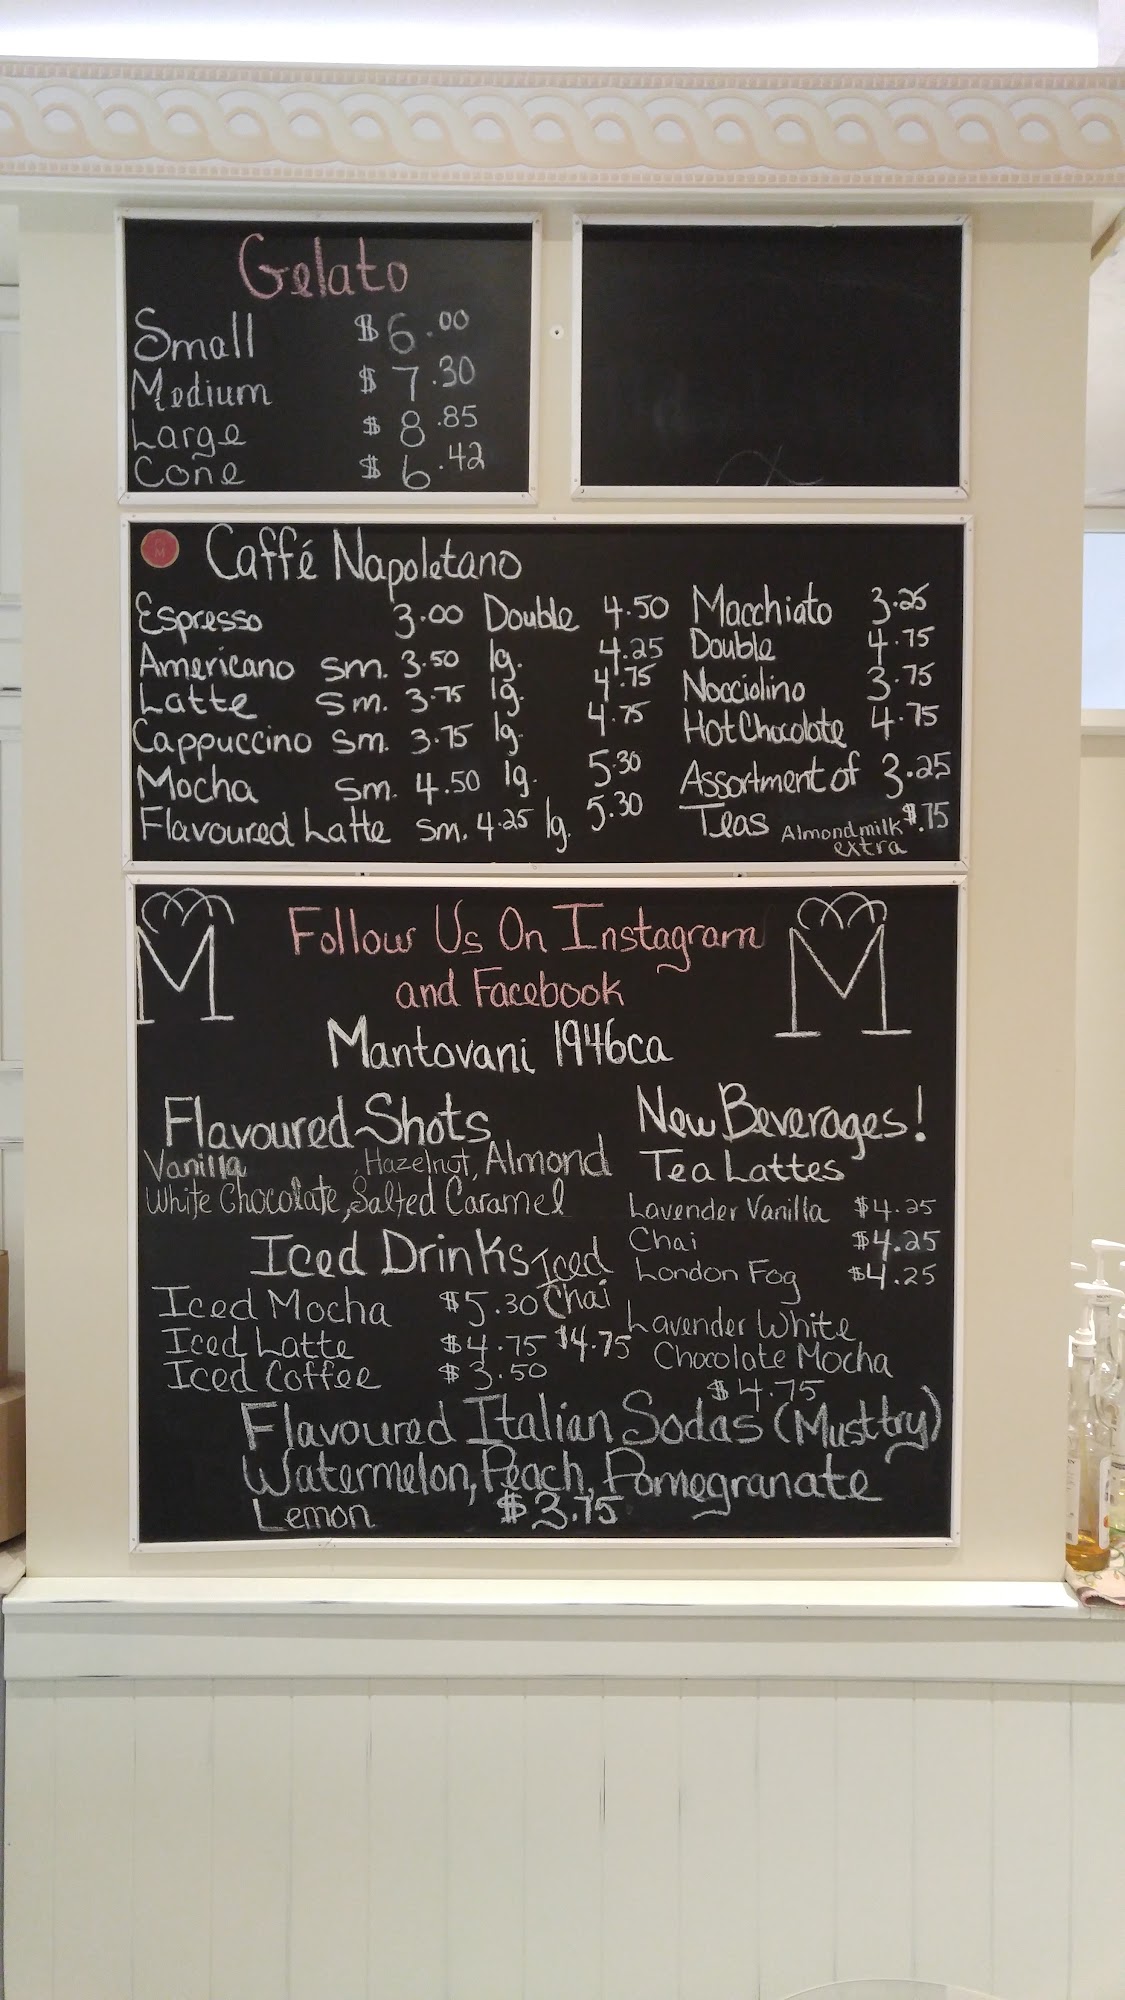 Gelato
Small $6.00
Medium $7.30
Large $8.85
Cone $6.42
M
Caffé Napoletano
Espresso 3.00 Double 4.50
Americano sm. 3.50 lg. 4.25
Latte sm. 3.75 lg. 4.75
Cappuccino sm. 3.75 lg. 4.75
Mocha sm. 4.50 lg. 5.30
Flavoured Latte sm. 4.25 lg. 5.30
Macchiato 3.25
Double 4.75
Nocciolino 3.75
Hot Chocolate 4.75
Assortment of 3.25
Teas Almond milk $.75
extra
M
M
Follow Us On Instagram
and Facebook
Mantovani 1946ca
Flavoured Shots
Vanilla, Hazelnut, Almond
White Chocolate, Salted Caramel
Iced Drinks
Iced Mocha $5.30
Iced Latte $4.75
Iced Coffee $3.50
Iced
Chai
$4.75
New Beverages!
Tea Lattes
Lavender Vanilla $4.25
Chai $4.25
London Fog $4.25
Lavender White
Chocolate Mocha
$4.75
Flavoured Italian Sodas (Must try)
Watermelon, Peach, Pomegranate
Lemon $3.75